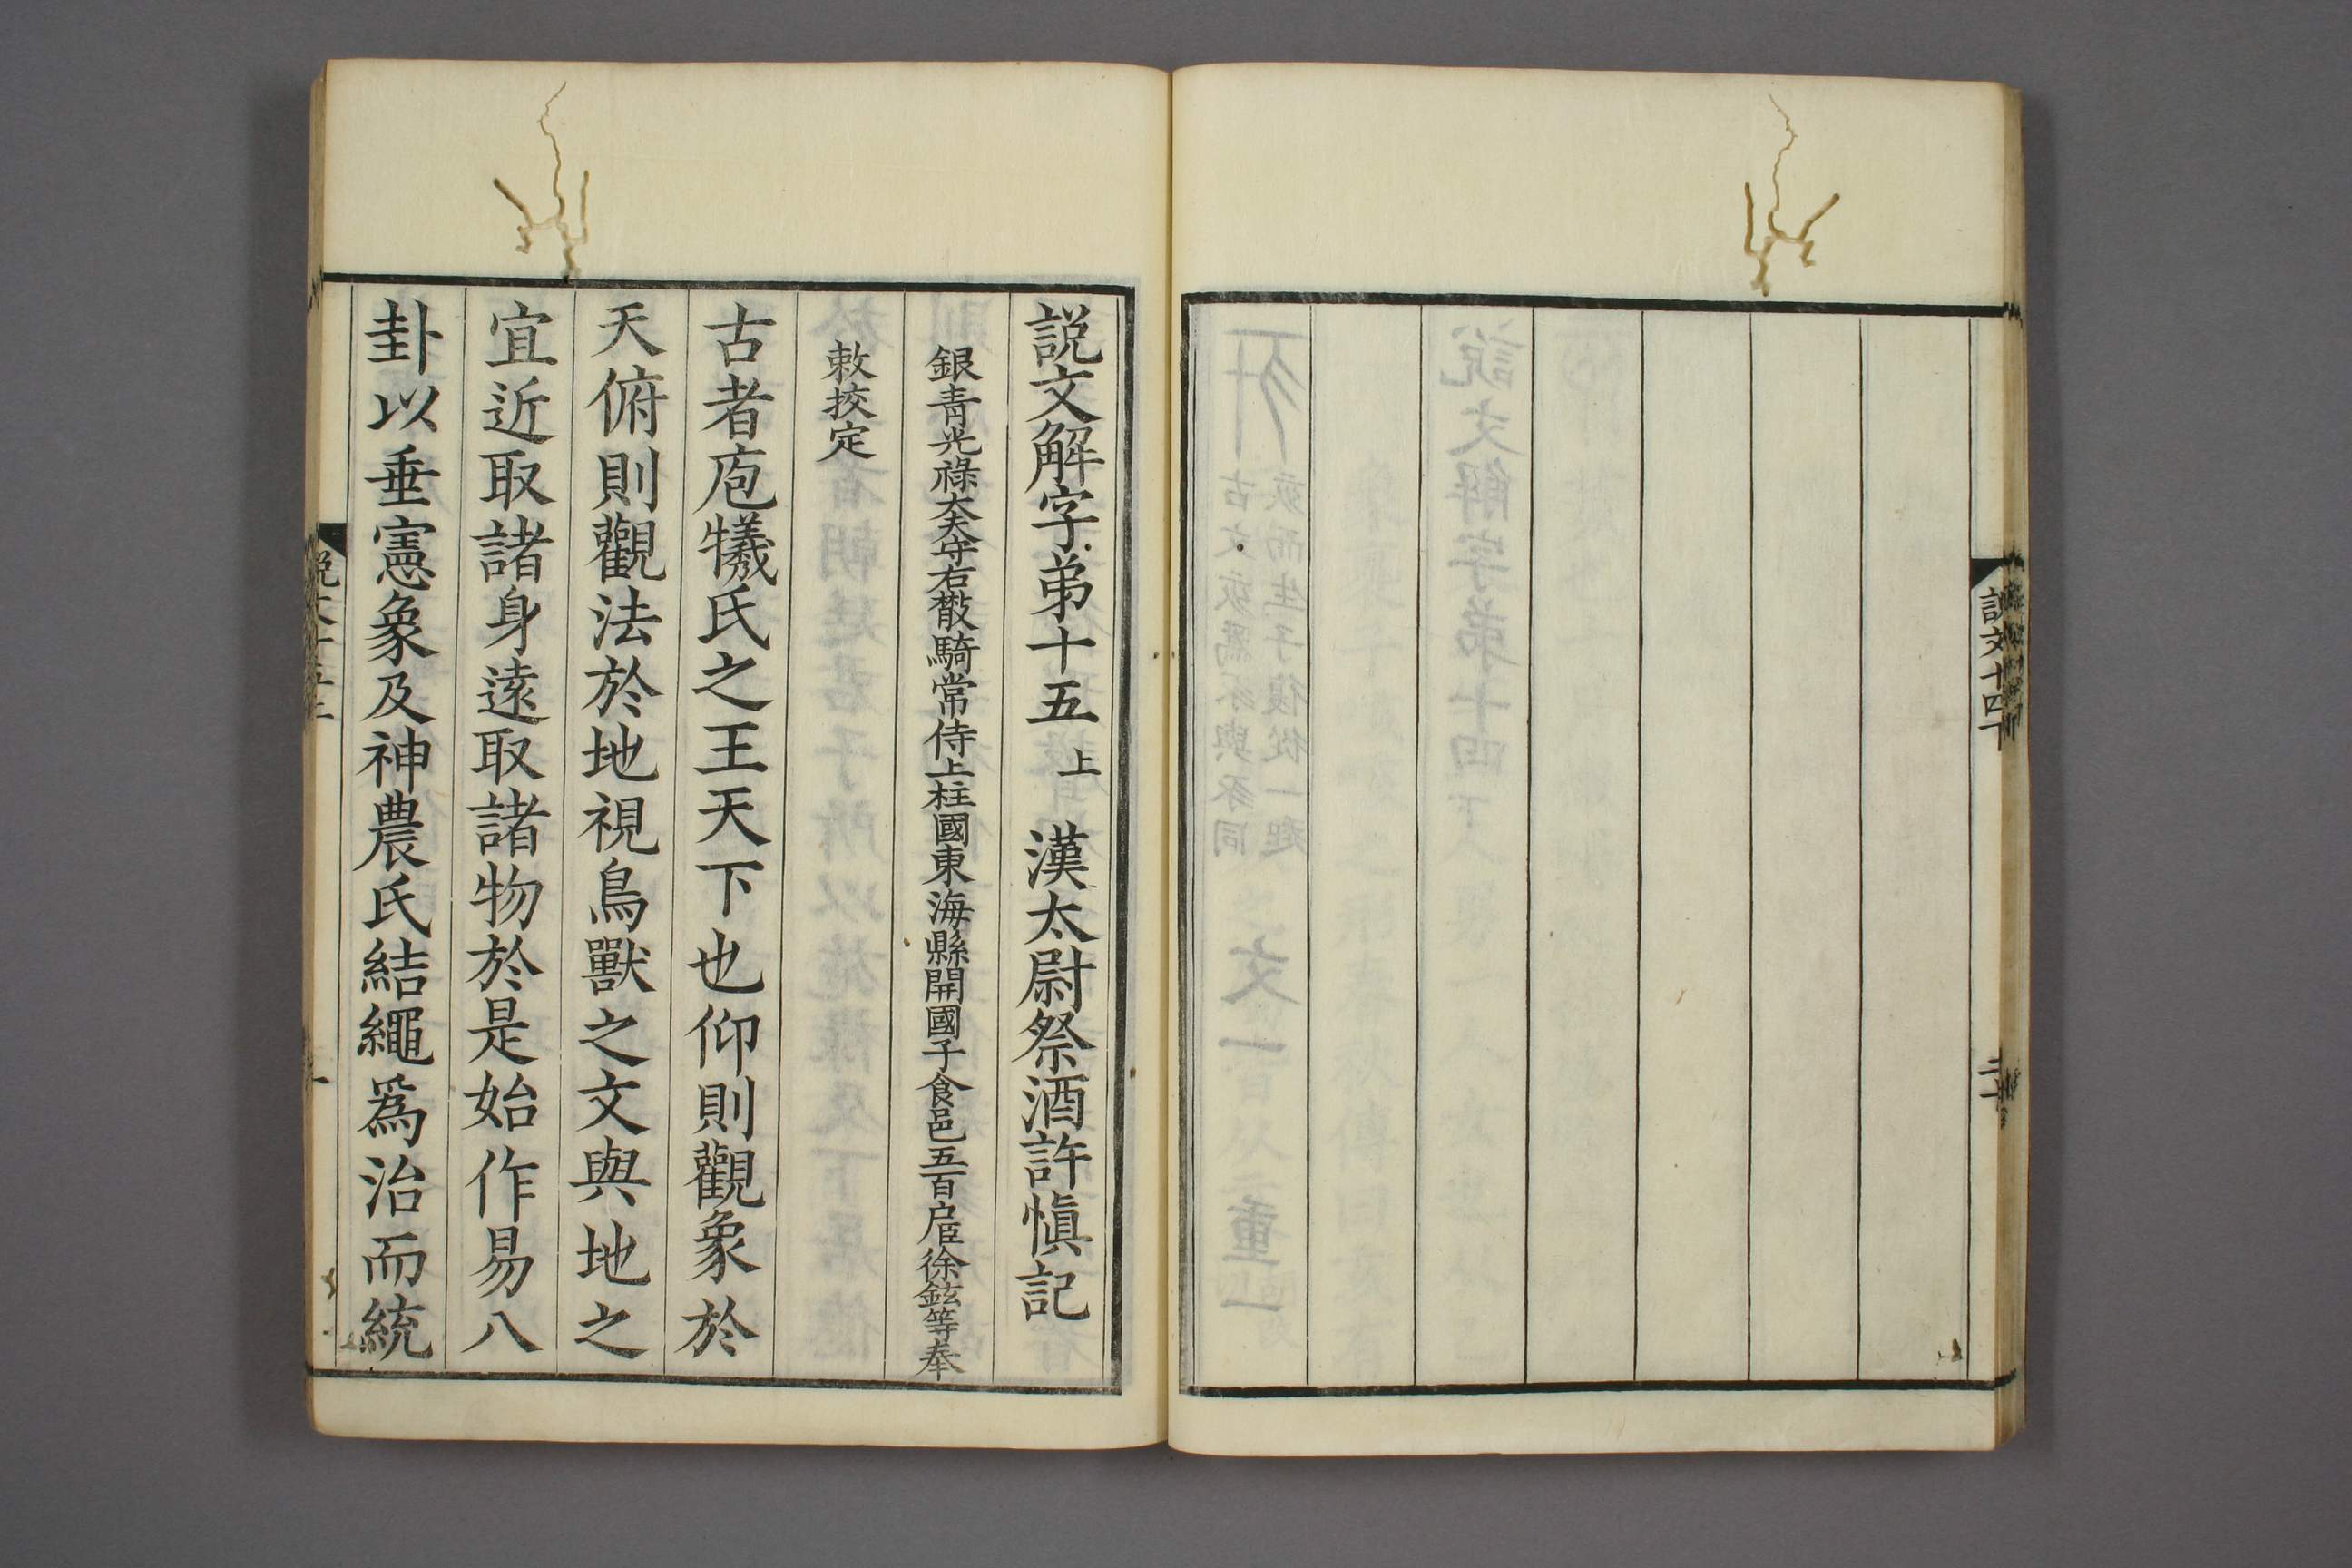 說文十四下
二十
說文解字弟十五 上 漢太尉祭酒許愼記
銀青光祿大夫守右散騎常侍上柱國東海縣開國子食邑五百戶臣徐鉉等奉
敕挍定
古者庖犧氏之王天下也仰則觀象於
天俯則觀法於地視鳥獸之文與地之
宜近取諸身遠取諸物於是始作易八
卦以垂憲象及神農氏結繩爲治而統
說文十五上
一